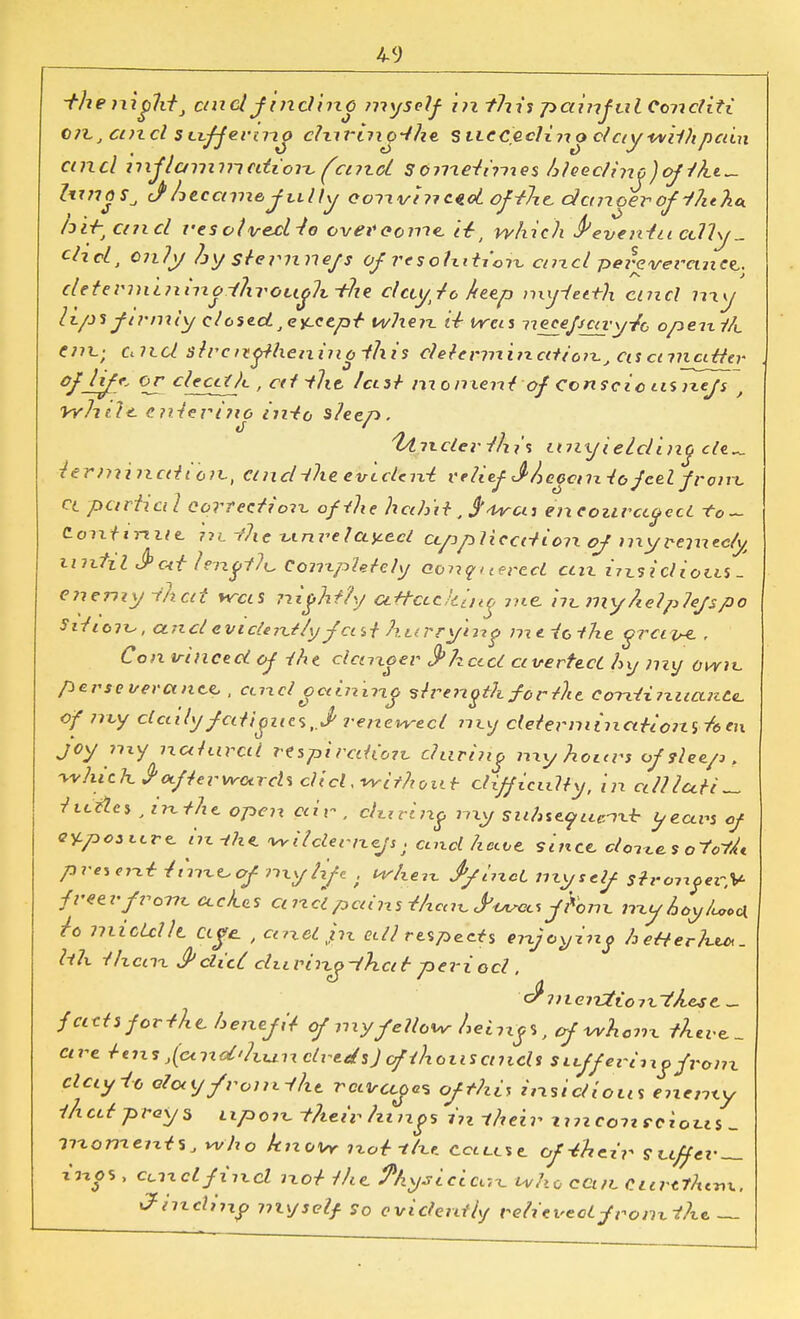 49
the night, and finding myself in this painful Conditi
on, and suffering during the succeeding day with pain
and inflammation (and sometimes bleeding) of the
lungs, I became fully convinced of the danger of the ha
bit, and resolved to overcome it, which I eventually
did, only by sternness of resolution and perseverance;
determining through the day, to keep my teeth and my
lips firmly closed, except when it was necessary to open th
em; and strengthening this determination, as a matter
of life or death, at the last moment of consciousness,
while entering into sleep.
Under this unyielding de-
termination, and the evident relief I began to feel from
a partial correction of the habit, I was encouraged to
Continue in the unrelaxed application of my remedy,
until I at length completely conquered an insidious
enemy that was nightly attacking me in my helpless po
sition, and evidently fast hurrying me to the grave.
Convinced of the danger I had averted by my own
perseverance, and gaining strength for the continuance
of my daily fatigues, I renewed my determinations to en
joy my natural respiration during my hours of sleep,
which I afterwards did, without difficulty, in all lati
tudes, in the open air, during my subsequent years of
exposure in the wilderness; and have since done so to the
present time of my life; when I find myself stronger, &
freer from aches and pains than I was from my boyhood
to middle age, and in all respects enjoying better hea-
lth than I did during that period.
I mention these
facts for the benefit of my fellow beings, of whom there
are tens (and hundreds) of thousands suffering from
day to day from the ravages of this insidious enemy
that preys upon their lungs in their unconscious
moments, who know not the cause of their suffer
ings, and find not the Physician who can cure them.
Finding myself so evidently relieved from the